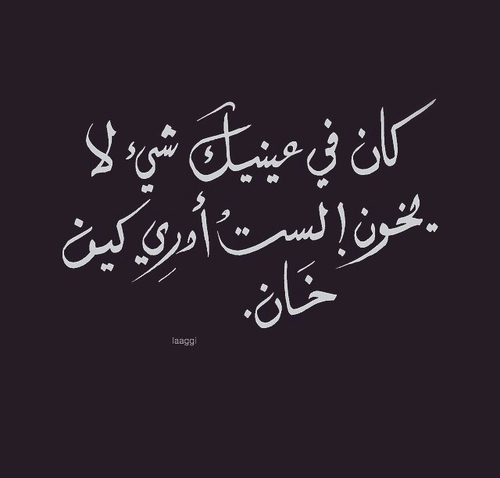 كان في عينيكَ شيء لا
يخون! لستُ أدرِي كيف
خَان.
laaggi